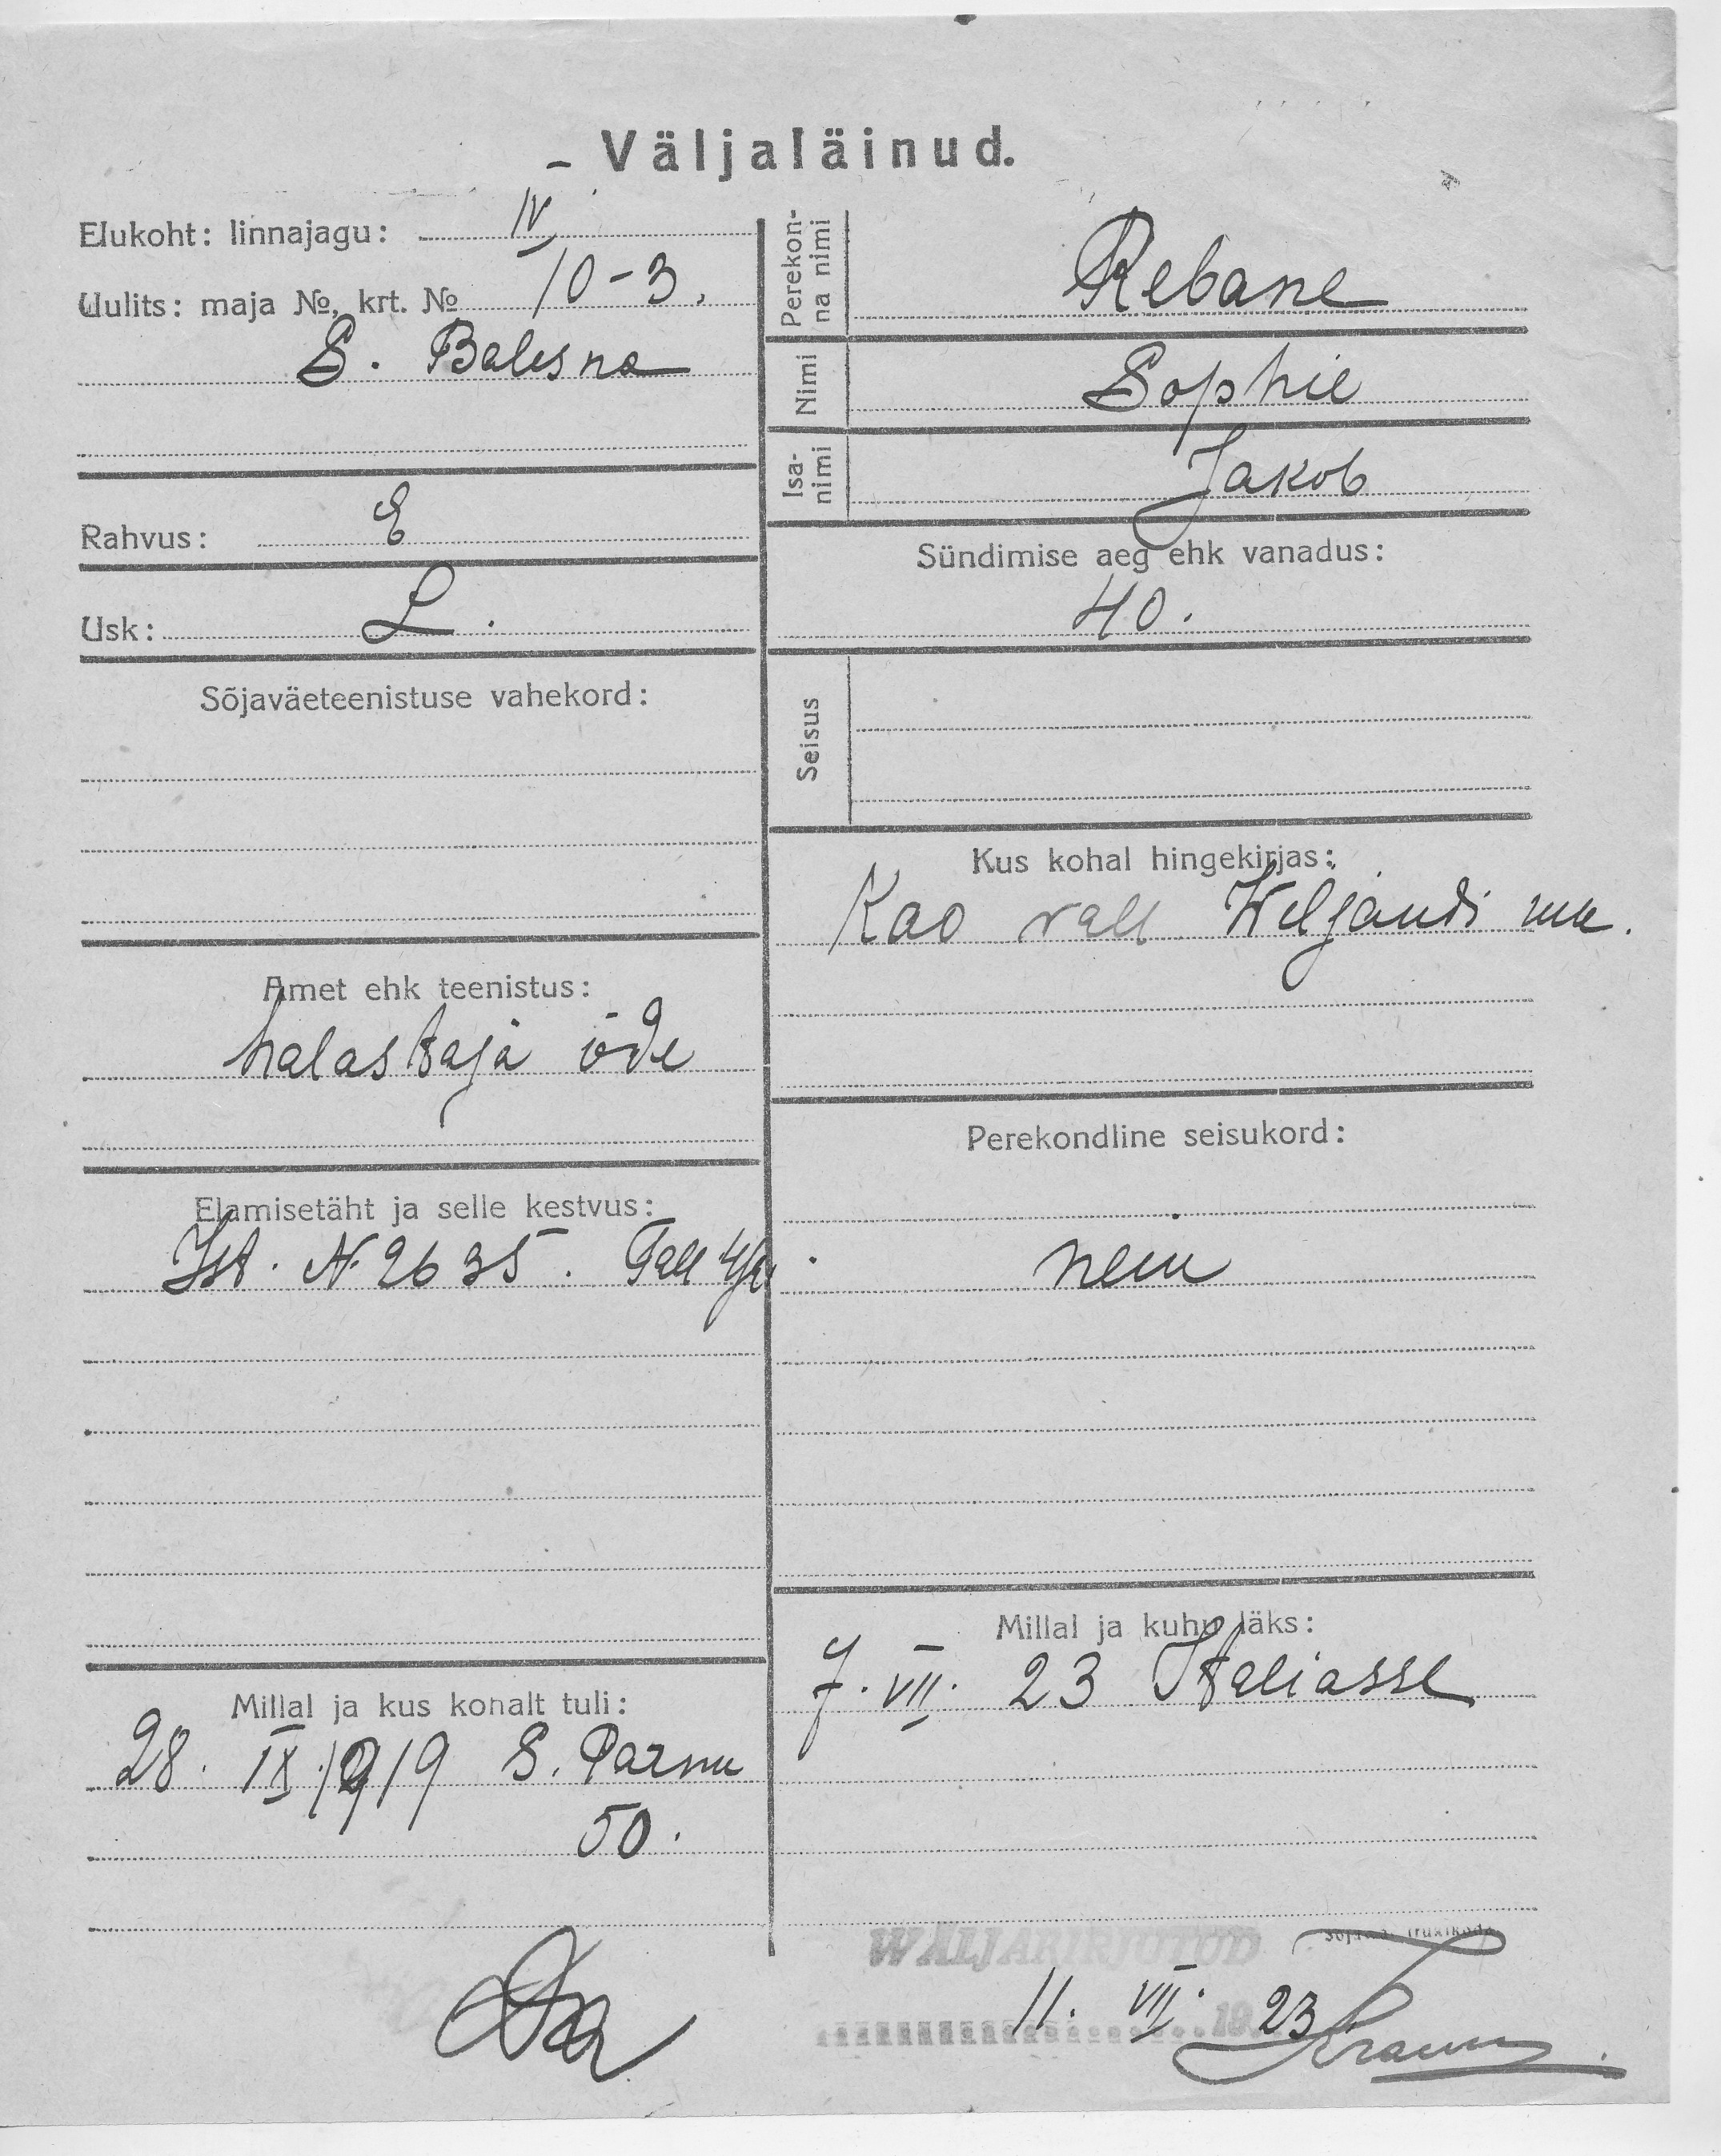 Väljaläinud.
Elukoht: linnajagu: IV
Uulits: maja №, krt. № 10-3.
S.
Rahvus: E
Usk: L.
Sõjaväeteenistuse vahekord:
Amet ehk teenistus:
halastaja õde
Elamisetäht ja selle kestvus:
Ist. N 2635. Tall
Millal ja kus kohalt tuli:
28. IX. 1919 S. Pärnu
50.
Perekon-
na nimi
Rebane
Nimi Sophie
Isa-
nimi
Jakob
Sündimise aeg ehk vanadus:
40.
Seisus
Kus kohal hingekirjas:
Kao vall Wiljandi mk.
Perekondline seisukord:
neiu
Millal ja kuhu läks:
7. VII. 23 Italiasse
WÄLJAKIRJUTUD
11. VII. 19 23